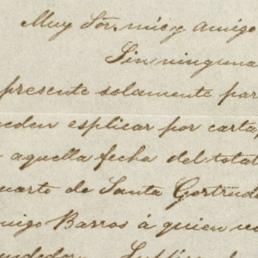 Muy Sor. mio y amigo
Sin ninguna
presente solamente par
eden esplicar por carta
aquella fecha del total
uarto de Santa Gertrude
migo Barros á quien